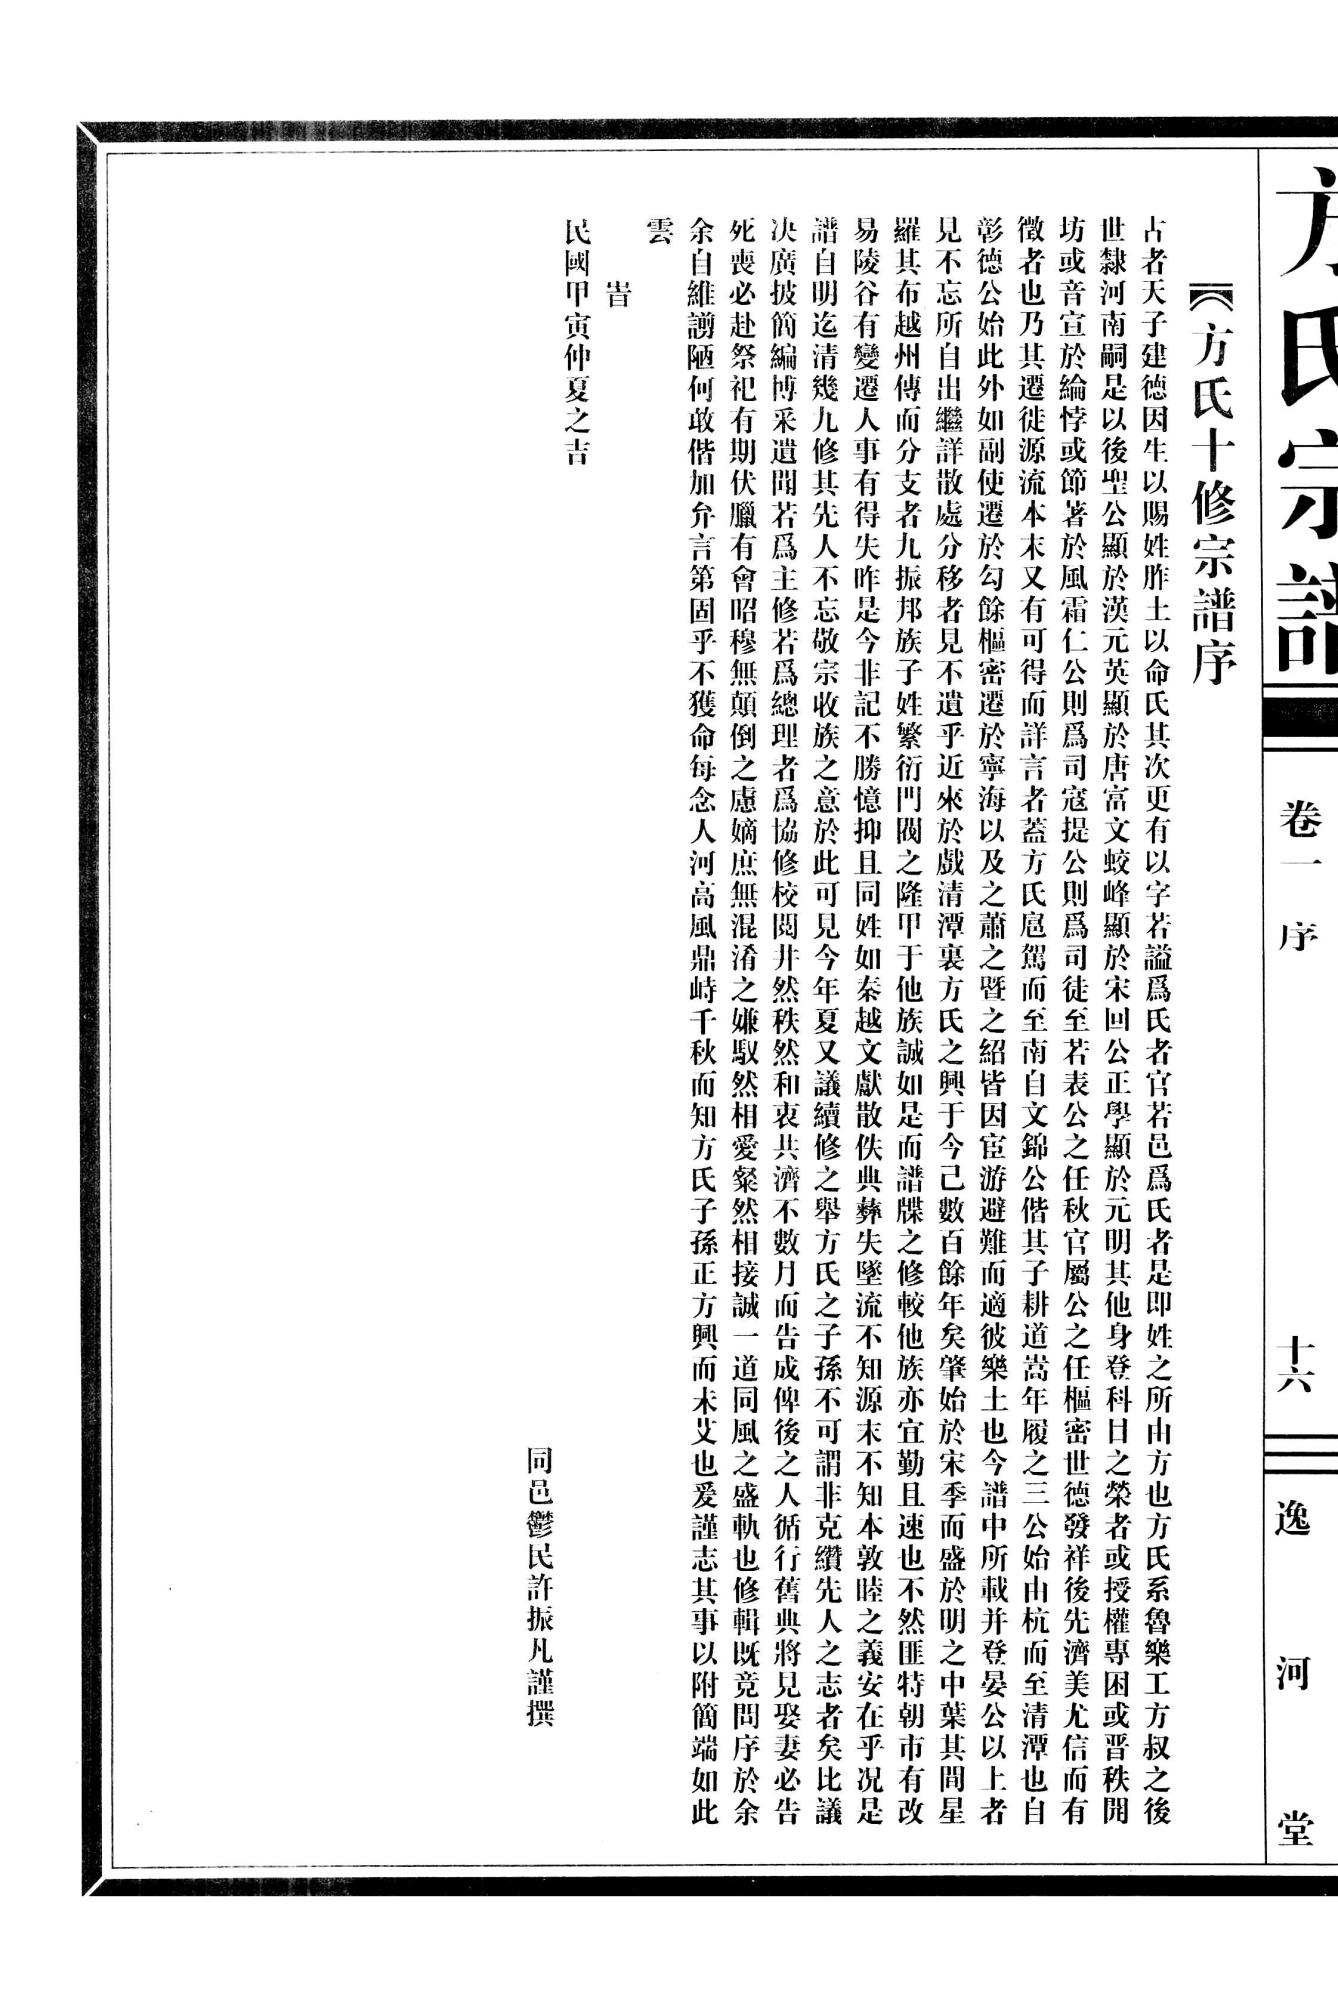 方氏宗譜
卷一 序
十六
逸河堂
方氏十修宗譜序
占者天子建德因生以賜姓胙土以命氏其次更有以字若謚爲氏者官若邑爲氏者是即姓之所由方也方氏系魯樂工方叔之後
世隸河南嗣是以後聖公顯於漢元英顯於唐富文蛟峰顯於宋回公正學顯於元明其他身登科日之榮者或授權專困或晋秩開
坊或音宣於綸悖或節著於風霜仁公則爲司寇提公則爲司徒至若表公之任秋官屬公之任樞密世德發祥後先濟美尤信而有
徵者也乃其遷徙源流本末又有可得而詳言者蓋方氏扈駕而至南自文錦公偕其子耕道嵩年履之三公始由杭而至清潭也自
彰德公始此外如副使遷於勾餘樞密遷於寧海以及之蕭之暨之紹皆因宦游避難而適彼樂土也今譜中所載并登晏公以上者
見不忘所自出繼詳散處分移者見不遺乎近來於戲清潭裏方氏之興于今己數百餘年矣肇始於宋季而盛於明之中葉其間星
羅其布越州傳而分支者九振邦族子姓繁衍門閥之隆甲于他族誠如是而譜牒之修較他族亦宜勤且速也不然匪特朝市有改
易陵谷有變遷人事有得失昨是今非記不勝憶抑且同姓如秦越文獻散佚典彝失墜流不知源末不知本敦睦之義安在乎况是
譜自明迄清幾九修其先人不忘敬宗收族之意於此可見今年夏又議續修之舉方氏之子孫不可謂非克纘先人之志者矣比議
决廣披簡編博采遺聞若爲主修若爲總理者爲協修校閱井然秩然和衷共濟不數月而告成俾後之人循行舊典將見娶妻必告
死喪必赴祭祀有期伏臘有會昭穆無顛倒之慮嫡庶無混淆之嫌馭然相愛粲然相接誠一道同風之盛軌也修輯既竟問序於余
余自維謭陋何敢偕加弁言第固乎不獲命每念人河高風鼎峙千秋而知方氏子孫正方興而未艾也爰謹志其事以附簡端如此
雲
旹
民國甲寅仲夏之吉
同邑鬱民許振凡謹撰